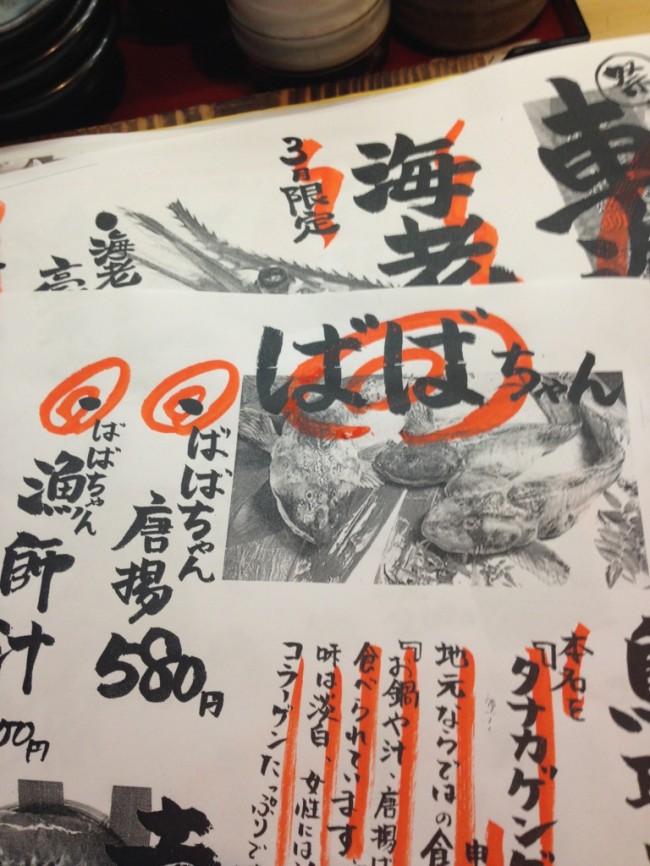 3月限定
海老
海老
ばばちゃん
ばばちゃん
唐揚
580円
ばばちゃん
漁師
汁
00円
本名を
『タナカゲン
地元ならではの食
『お鍋や汁、唐揚
食べられています
味は淡白、女性には
コラーゲンたっぷりで